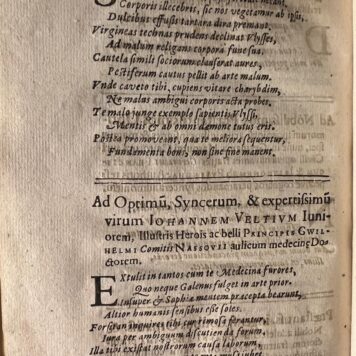 Corporis illecebris, sic nos vegetamur ab ipsis,
Dulcibus effusis tartara dira premant.
Virgineas technas prudens declinat Vlysses,
Ad malum religans corpora fune sua.
Cautela simili sociorum clauserat aures,
Pestiferum cautus pellit ab arte malum.
Vnde caveto tibi, cupiens vitare charybdim,
Ne malus ambigui corporis acta probes.
Te malo junge exemplo sapientis Vlyssi,
Mentis & ab omni dæmone tutus eris.
Postea promoveant, quæ te meliora sequentur,
Fundamenta boni, non sine fine manent.
Ad Optimũ, Syncerum, & expertissimũ
virum IOHANNEM VELTIVM Iuni-
orem, Illustris Herois ac belli PRINCIPIS GWIL-
HELMI Comitis NASSOVII aulicum medicinę Do-
ctorem.
EXtulit in tantos cum te Medicina furores,
Quo neque Galenus fulget in arte prior.
Insuper & Sophiæ mentem præcepta bearunt,
Altior humanis sensibus esse soles.
Forsan inquires tibi cur rimosa ferantur,
Iura per ambiguum discutienda forum.
Illa tibi exstat nostrorum causa laborum,